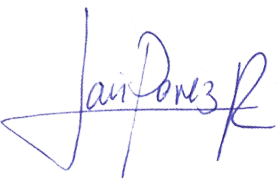 Jair Perez R